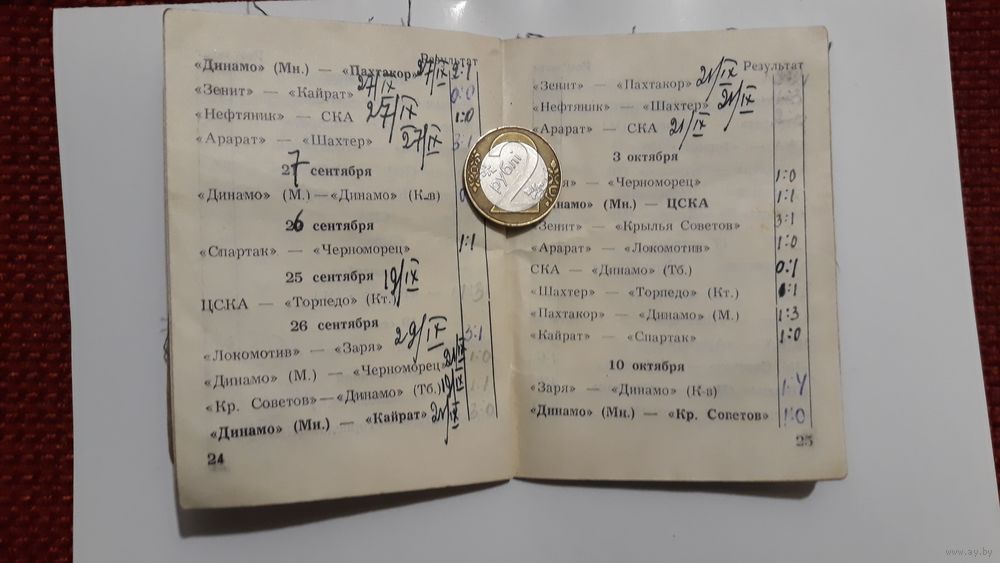 Результат
«Динамо» (Мн.) — «Пахтакор» 27/IX 2:1
«Зенит» — «Кайрат» 27/IX 0:0
«Нефтяник» — СКА 27/IX 1:0
«Арарат» — «Шахтер» 27/IX 3:1
27 сентября
«Динамо» (М.) — «Динамо» (К-в)
26 сентября
«Спартак» — «Черноморец» 1:1
25 сентября 19/IX
ЦСКА — «Торпедо» (Кт.) 1:3
26 сентября
«Локомотив» — «Заря» 29/IX 3:1
«Динамо» (М.) — «Черноморец» 21/IX 1:0
«Кр. Советов» — «Динамо» (Тб.) 19/IX 1:1
«Динамо» (Мн.) — «Кайрат» 21/IX 3:0
24
Результат
«Зенит» — «Пахтакор» 21/IX
«Нефтяник» — «Шахтер» 21/IX
«Арарат» — СКА 21/IX
3 октября
— «Черноморец» 1:0
(Мн.) — ЦСКА 1:1
«Зенит» — «Крылья Советов» 3:1
«Арарат» — «Локомотив» 1:0
СКА — «Динамо» (Тб.) 0:1
«Шахтер» — «Торпедо» (Кт.) :1
«Пахтакор» — «Динамо» (М.) 1:3
«Кайрат» — «Спартак» 1:0
10 октября
«Заря» — «Динамо» (К-в) 1:4
«Динамо» (Мн.) — «Кр. Советов» 1:0
25
2
рублі
www.ay.by